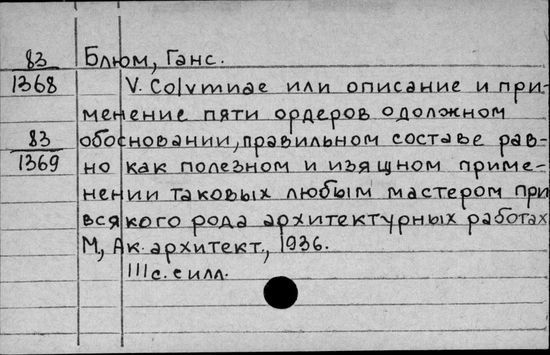 83
1368
83
1369
Блюм, Ганс.
V. Colvmnae или описание и при-
менение пяти ордеров одолжном
обосновании, правильном составе рав-
но как полезном и изящном приме-
нении таковых любым мастером при
всякого рода архитектурных работах
М, Ак. архитект., 1936.
111с. с илл.